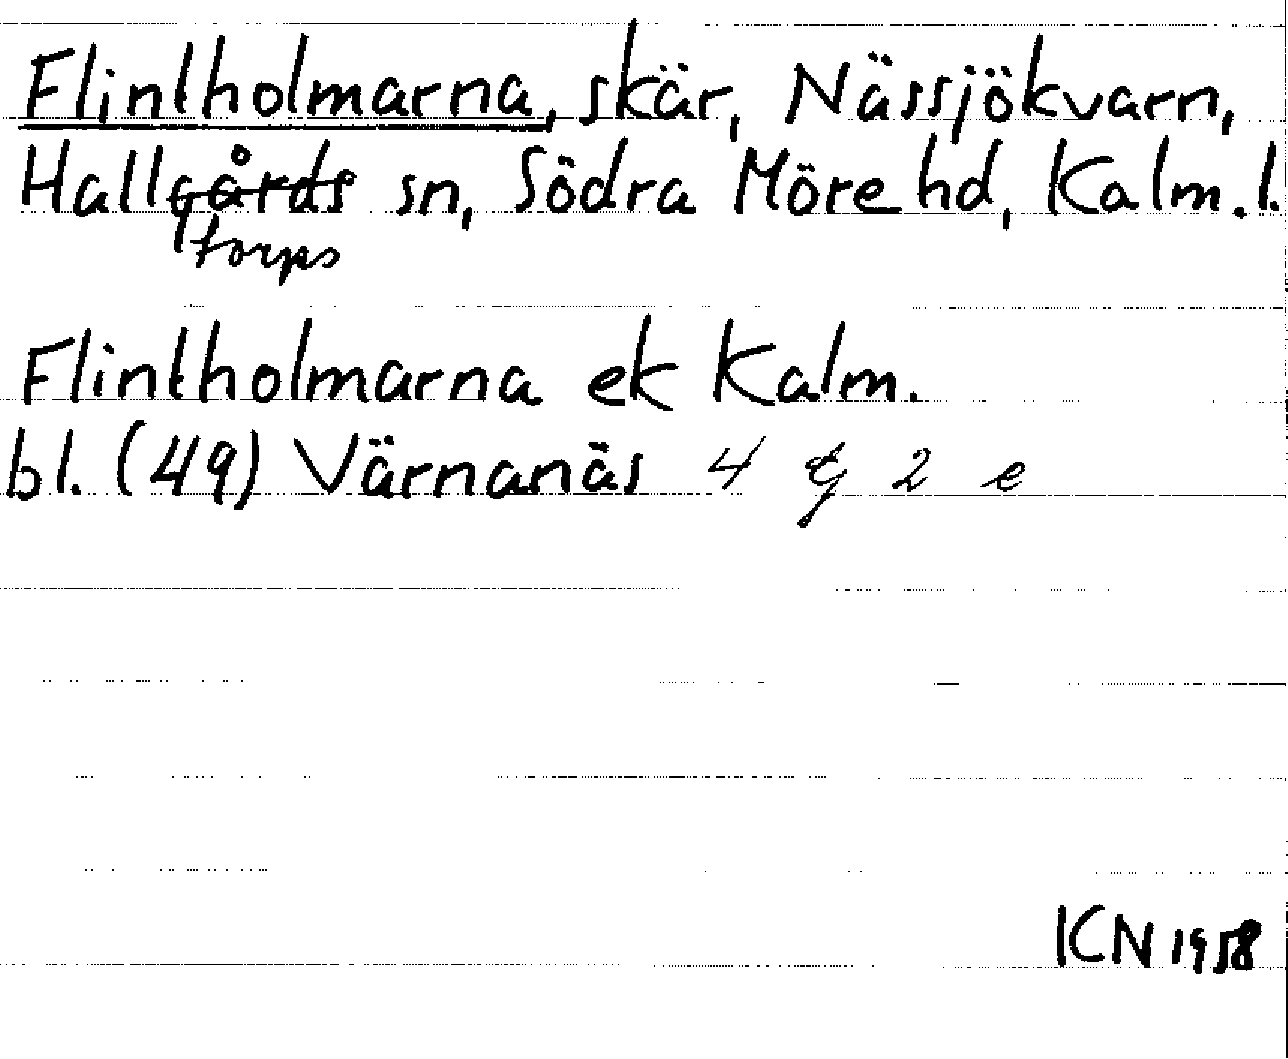 Flintholmarna, skär, Nässjökvarn,
Hallgårds sn, Södra Möre hd, Kalm. l.
torps
Flintholmarna ek Kalm.
bl. (49) Värnanäs 4 g 2 e
ICN 1958